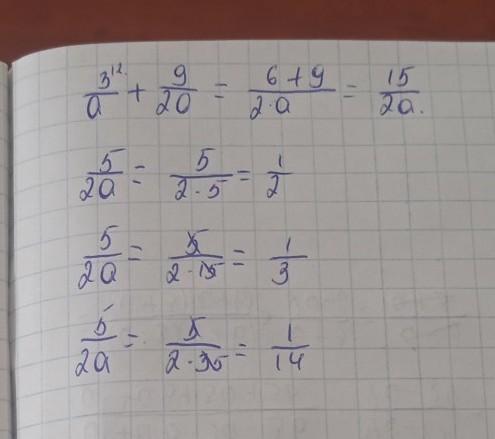 3^12/a + 9/2a = 6+9/2·a = 15/2a.
5/2a = 5/2·5 = 1/2
5/2a = 5/2·15 = 1/3
5/2a = 5/2·35 = 1/14